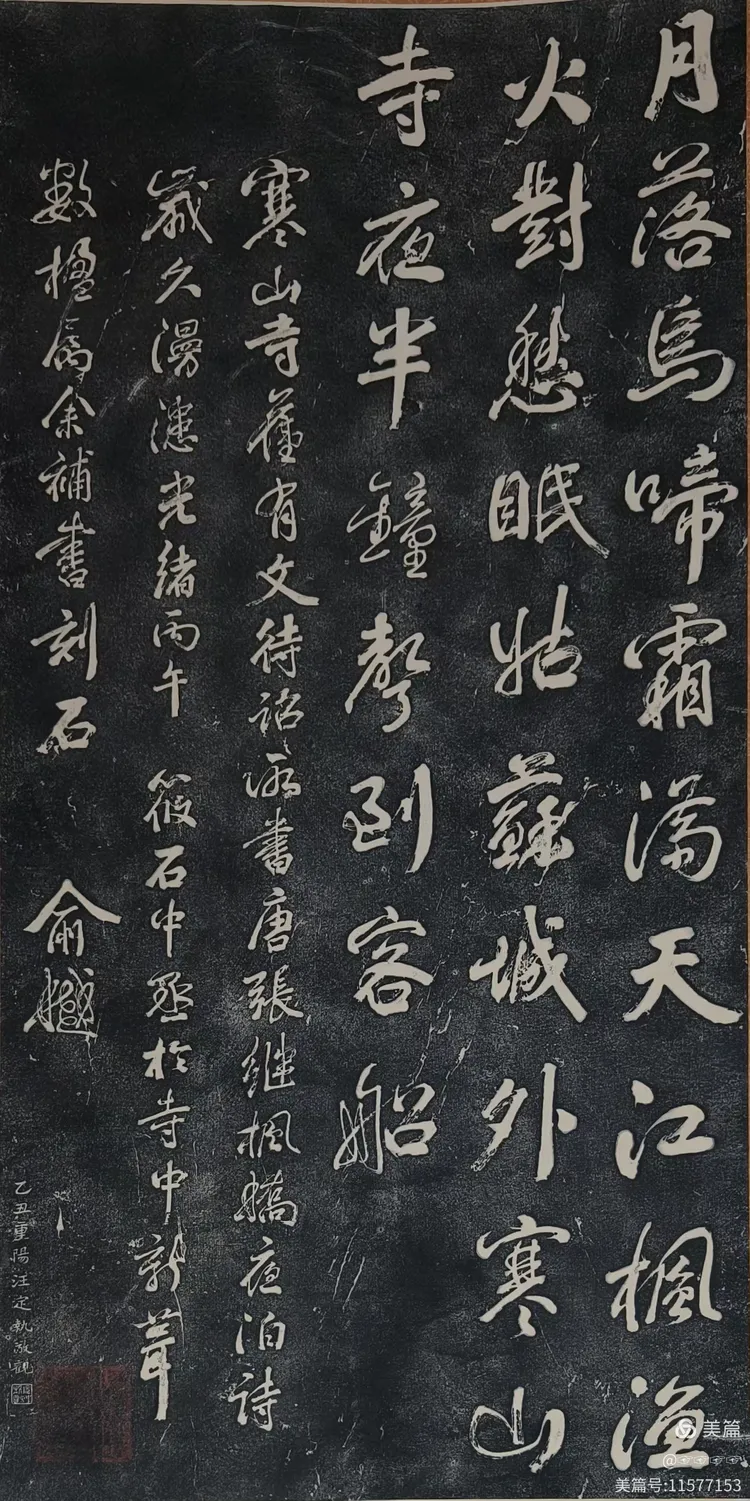 月落烏啼霜滿天江楓漁
火對愁眠姑蘇城外寒山
寺夜半鐘聲到客船
寒山寺舊有文待詔所書唐張繼楓橋夜泊詩
歲久漫漶光緒丙午　筱石中丞於寺中新葺
數楹屬余補書刻石　俞樾
乙丑重陽汪定執敬觀
美篇
美篇号:11577153